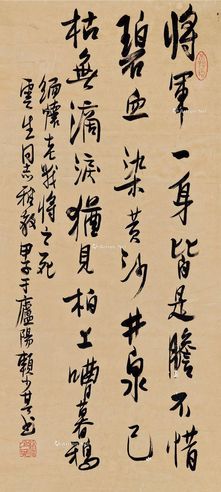 將軍一身皆是膽不惜
碧血染黃沙井泉已
枯無滴淚猶見柏上嘈暮鴉
緬懷老戰將之死
雲生同志雅教 甲子于廬陽賴少其書